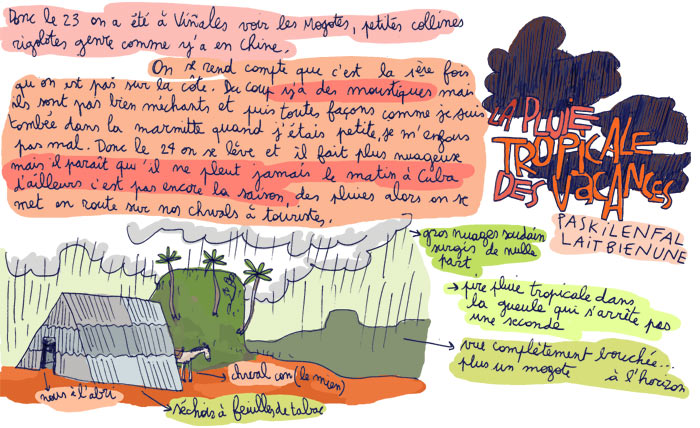 Donc le 23 on a été à Viñales voir les Mogotes, petites collines
rigolotes genre comme y'a en Chine.
On se rend compte que c'est la 1ère fois
qu'on est pas sur la côte. Du coup y'a des moustiques mais
ils sont pas bien méchants et puis toutes façons comme je suis
tombée dans la marmitte quand j'étais petite, je m'enfous
pas mal. Donc le 24 on se lève et il fait plus nuageux
mais il paraît qu'il ne pleut jamais le matin à Cuba
d'ailleurs c'est pas encore la saison des pluies alors on se
met en route sur nos chvals à touristes.
LA PLUIE
TROPICALE
DES VACANCES
PASKILENFAL
LAIT BIEN UNE
gros nuages soudain
surgis de nulle
part
pire pluie tropicale dans
la gueule qui s'arrête pas
une seconde
vue complètement bouchée...
plus un mogote à l'horizon
chval con (le mien)
nous à l'abri
séchoir à feuilles de tabac